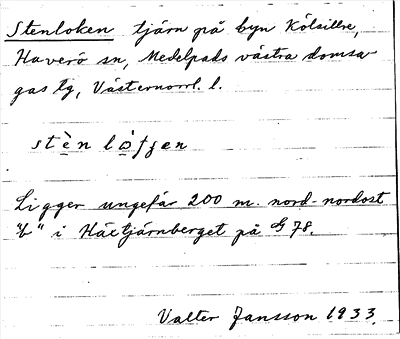 Stenloken tjärn på byn Kölsillre,
Haverö sn, Medelpads västra domsa-
gas tg, Västernorrl. l.
stèn lò̩fjen
Ligger ungefär 200 m. nord-nordost
"b" i Häxtjärnberget på G 78.
Valter Jansson 1933.